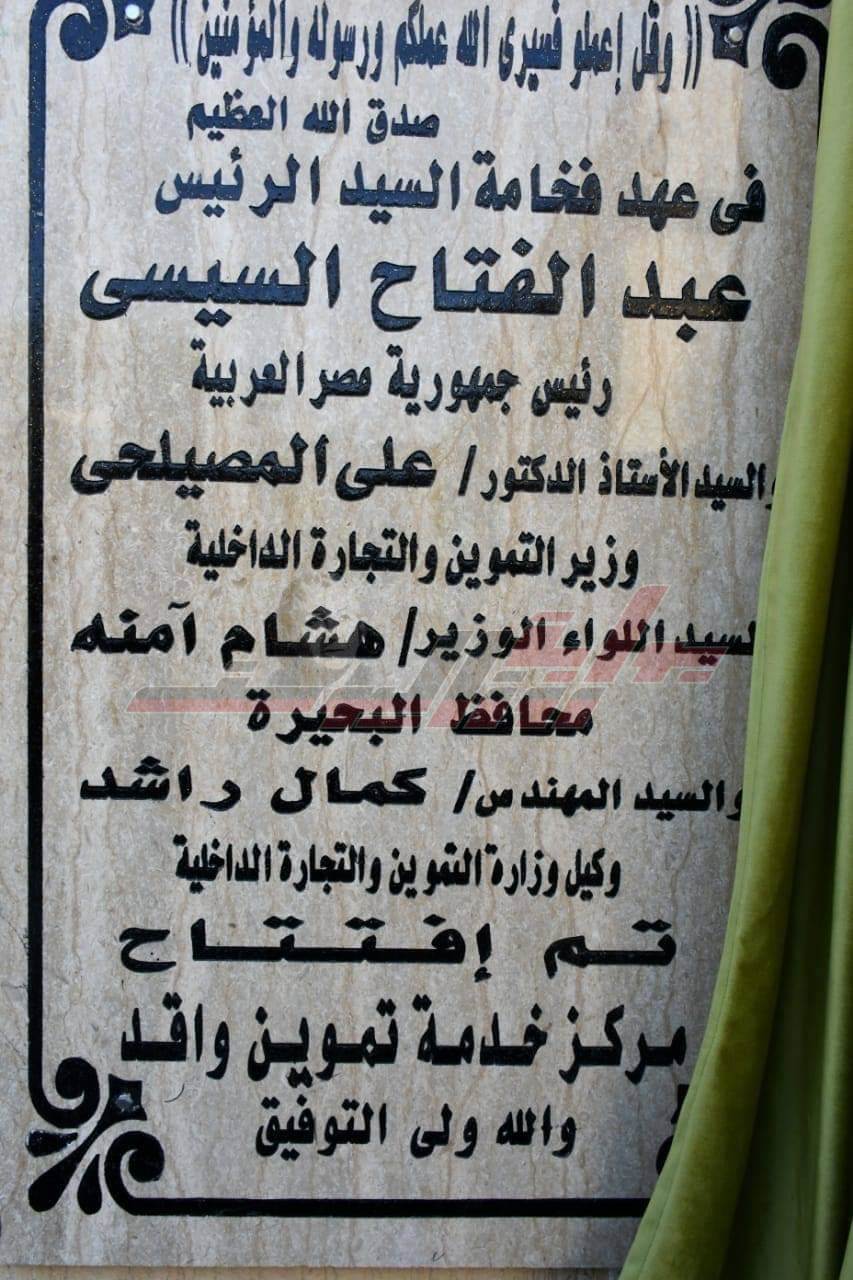 (( وقل إعملو فسيرى الله عملكم ورسوله والمؤمنين ))
صدق الله العظيم
فى عهد فخامة السيد الرئيس
عبد الفتاح السيسى
رئيس جمهورية مصر العربية
والسيد الأستاذ الدكتور / على المصيلحى
وزير التموين والتجارة الداخلية
السيد اللواء الوزير/ هشام آمنه
محافظ البحيرة
والسيد المهندس/ كمال راشد
وكيل وزارة التموين والتجارة الداخلية
تم إفتتاح
مركز خدمة تموين واقد
والله ولى التوفيق